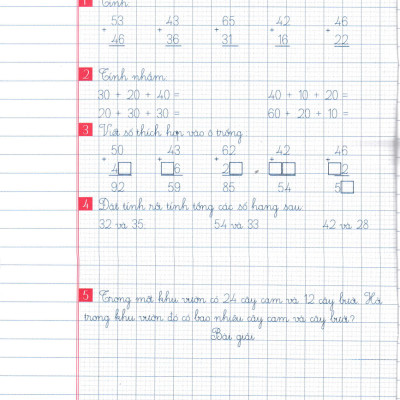 1 Tính:
53 43 65 42 46
+ + + + +
46 36 31 16 22
2 Tính nhẩm
30 + 20 + 40 = 40 + 10 + 20 =
20 + 30 + 30 = 60 + 20 + 10 =
3 Viết số thích hợp vào ô trống
50 43 62 42 46
+ + + + +
4□ □6 2□ □□ □2
92 59 85 54 5□
4 Đặt tính rồi tính tổng các số hạng sau:
32 và 35 54 và 33 42 và 28
5 Trong một khu vườn có 24 cây cam và 12 cây bưởi. Hỏi
trong khu vườn đó có bao nhiêu cây cam và cây bưởi?
Bài giải